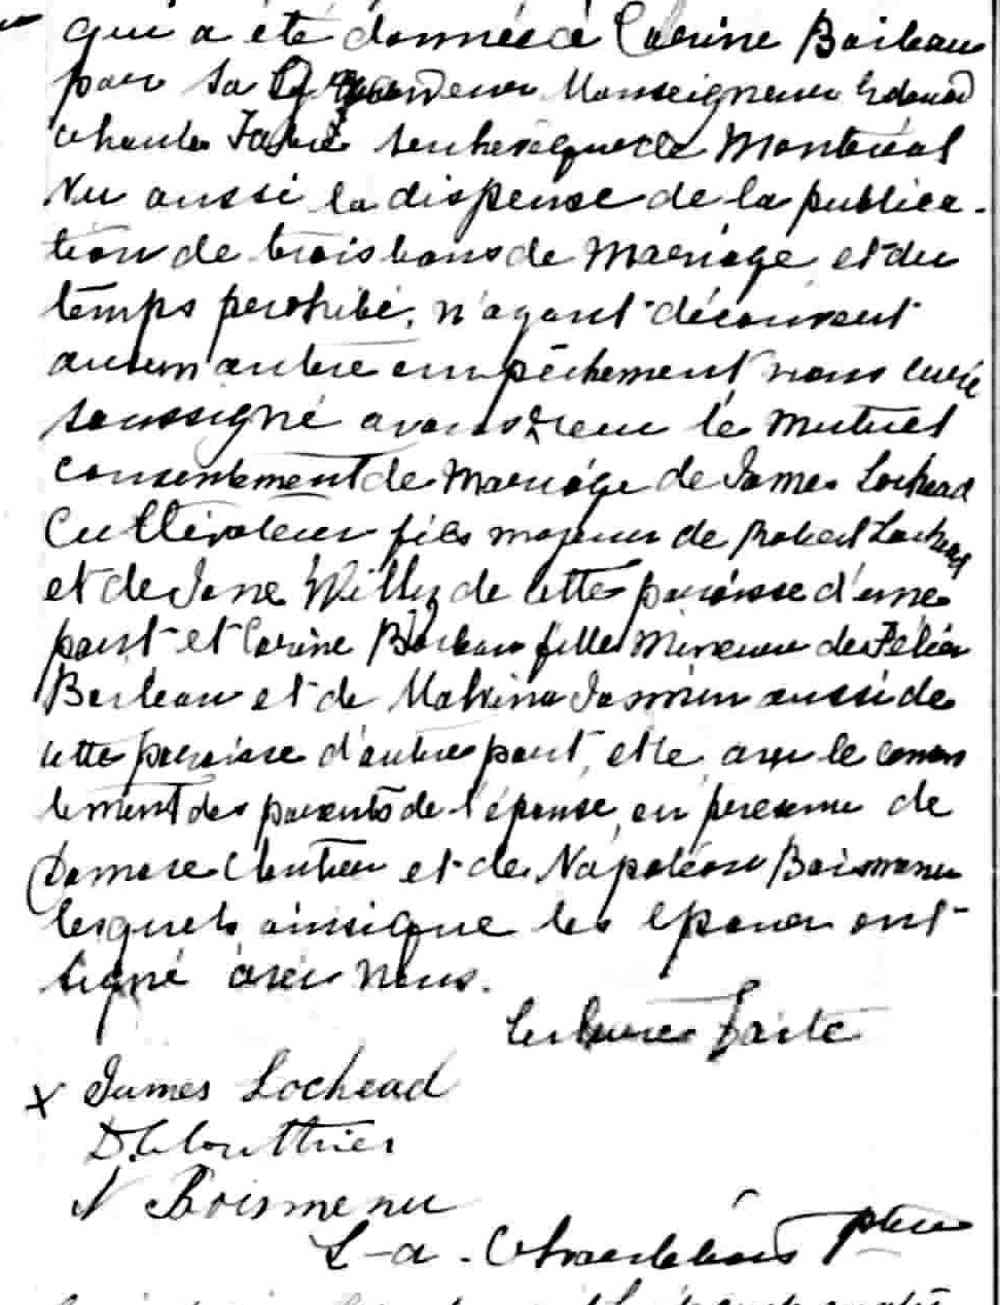 qui a été donnée à Corine Boileau
par Sa Grandeur Monseigneur Edouard
Charles Fabre Archevêque de Montréal
Vu aussi la dispense de la publica-
tion de trois bans de Mariage et du
temps prohibé, n'ayant découvert
aucun autre empêchement nous curé
soussigné avons reçu le mutuel
consentement de Mariage de James Lochead
Cultivateur fils majeur de Robert Lochead
et de Jane Willy de cette paroisse d'une
part et Corine Boileau fille Mineure de Félix
Boileau et de Malvina Jasmin aussi de
cette paroisse d'autre part, et le avec le consen
tement des parents de l'épouse, en présence de
Damase Cloutier et de Napoléon Boismenu
lesquels ainsi que les époux ont
signé avec nous.
James Lochead
D. Clouthier
N Boismenu
L-a. Charlebois ptre